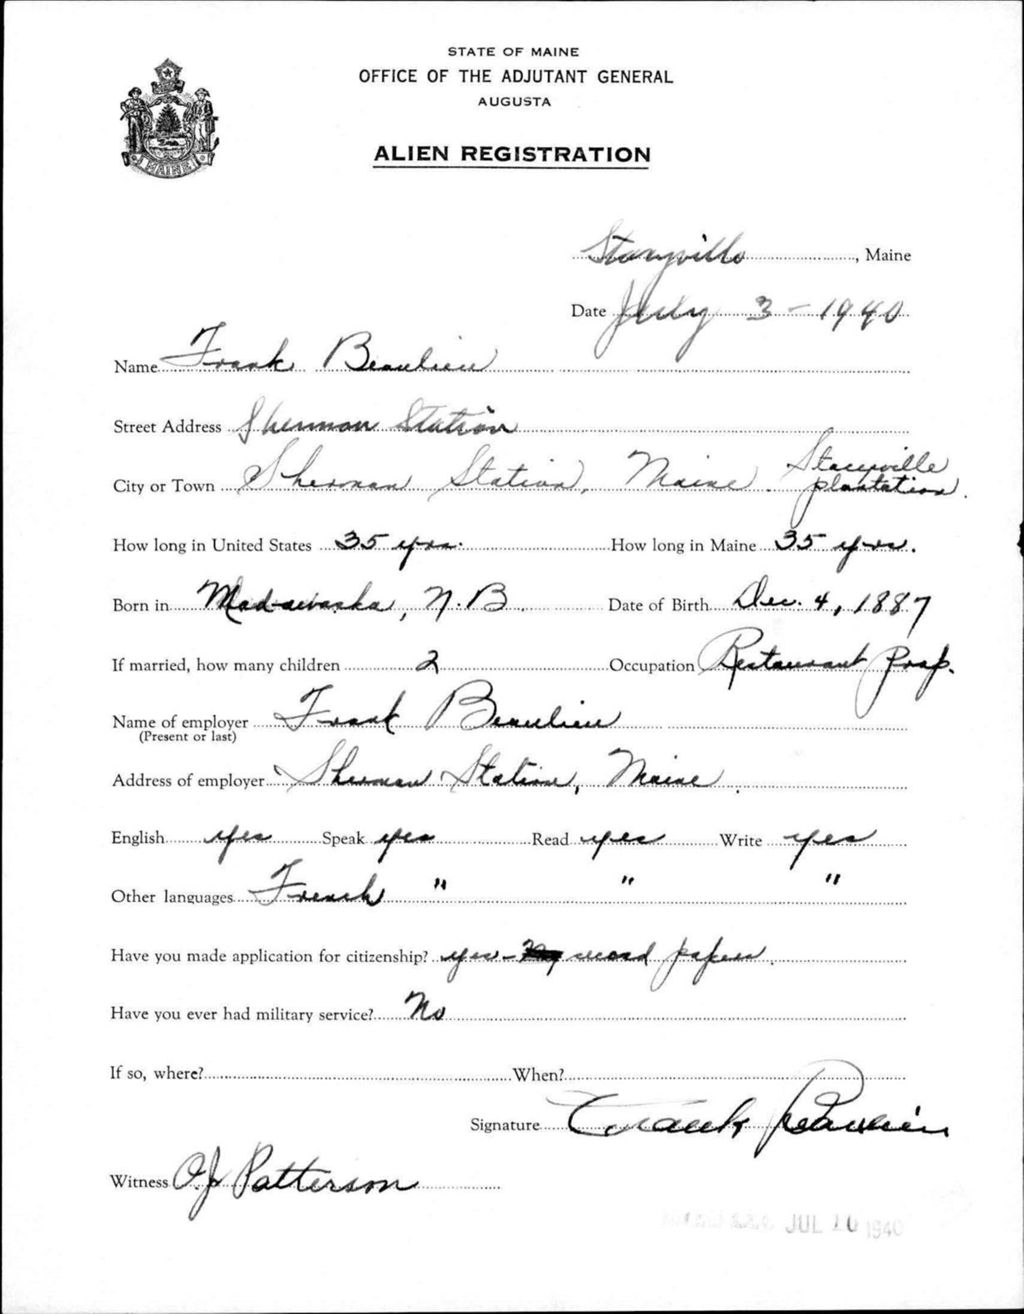 STATE OF MAINE
OFFICE OF THE ADJUTANT GENERAL
AUGUSTA
ALIEN REGISTRATION
MAINE
Staryville, Maine
Date July 3 - 1940
Name Frank Beaulieu
Street Address Sherman Station
City or Town Sherman Station, Maine. Staceyville plantation.
How long in United States 35 yrs. How long in Maine 35 yrs.
Born in Madawaska, N.B. Date of Birth Dec. 4, 1887
If married, how many children 2 Occupation Restaurant Prop.
Name of employer Frank Beaulieu
(Present or last)
Address of employer Sherman Station, Maine.
English yes Speak yes Read yes Write yes
Other languages French " " "
Have you made application for citizenship? yes - second papers.
Have you ever had military service? No
If so, where? When?
Signature Frank Beaulieu
Witness O.J. Patterson
JUL 10 1940